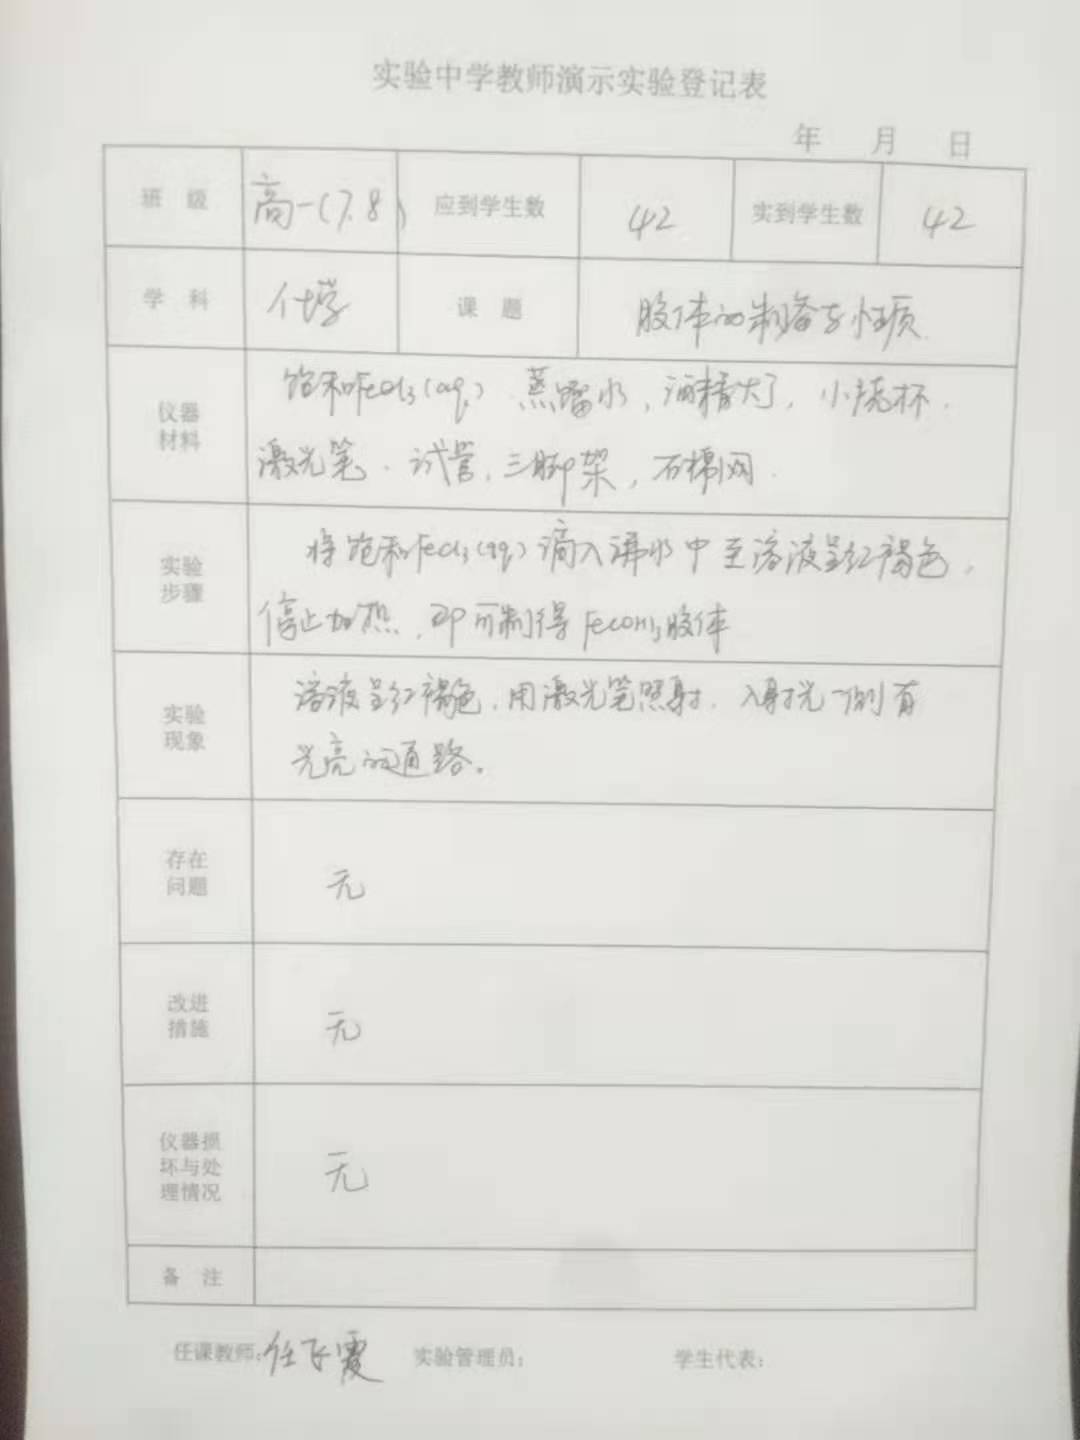 实验中学教师演示实验登记表
年 月 日
班 级 高一(7.8) 应到学生数 42 实到学生数 42
学 科 化学 课 题 胶体的制备与性质
仪器
材料
饱和FeCl3(aq) 蒸馏水，酒精灯，小烧杯．
激光笔．试管．三脚架，石棉网．
实验
步骤
将饱和FeCl3(aq)滴入沸水中至溶液呈红褐色，
停止加热．即可制得Fe(OH)3胶体
实验
现象
溶液呈红褐色．用激光笔照射．入射光一侧有
光亮的通路。
存在
问题
无
改进
措施
无
仪器损
坏与处
理情况
无
备 注
任课教师:任飞霞 实验管理员: 学生代表: